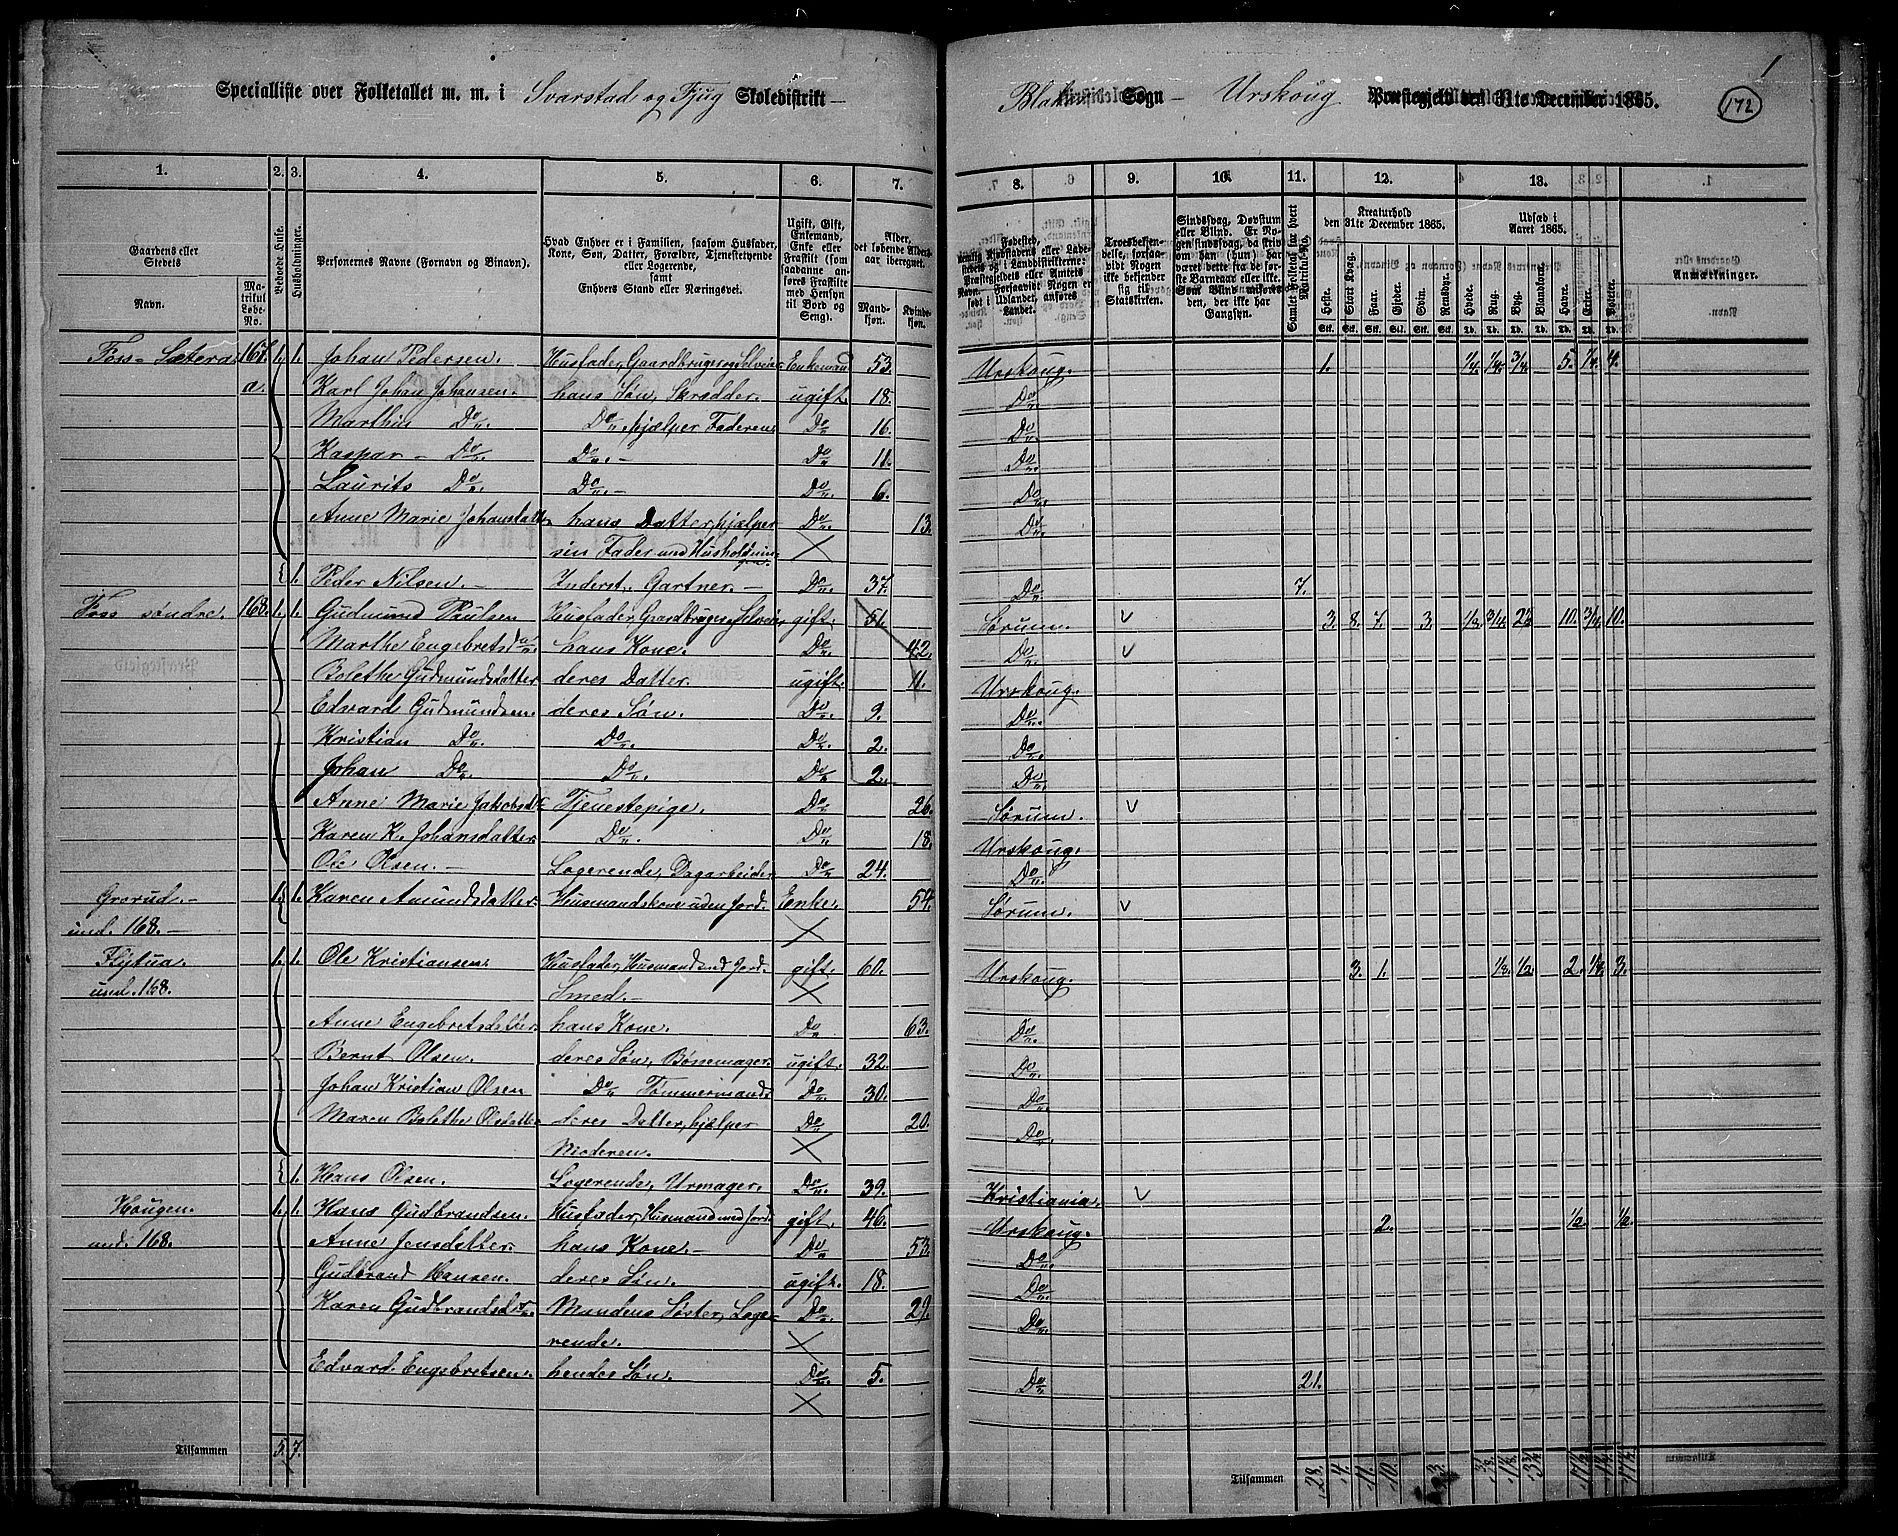 1
Specialliste over Folketallet m. m. i Svarstad og Fjug Skoledistrikt Blaker Sogn Urskoug Præstegjeld den 31te December 1865. 172
1. 2. 3. 4. 5. 6. 7. 8. 9. 10. 11. 12. 13.
Gaardens eller Stedets Navn. Matrikul Løbe-No.
Beboede Huse.
Husholdninger.
Personernes Navne (Fornavn og Binavn).
Hvad Enhver er i Familien, saasom Husfader, Kone, Søn, Datter, Forældre, Tjenestetyende eller Logerende, samt Enhvers Stand eller Næringsvei.
Ugift, Gift, Enkemand, Enke eller Fraskilt (som saadanne anføres Fraskilte med Hensyn til Bord og Seng).
Alder, det løbende Alders-aar iberegnet. Mandkjøn. Kvindekjøn.
Troesbekjendelse, forsaavidt Nogen ei bekjender sig til Statskirken.
Samlet Folketal for hvert Matrikul-No.
Kreaturhold den 31te December 1865. Heste. Stort Kvæg. Faar. Gjeder. Svin. Rensdyr.
Udsæd i Aaret 1865. Hvede. Rug. Byg. Blandkorn. Havre. Erter. Poteter.
Anmærkninger.
Foss Sætera 167. 1. 1. Johan Pedersen. Husfader, Gaardbruger og Selveier Enkemand 53. Urskoug. 1. 1/4. 1/4. 3/4. 5. 1/4. 4.
a. Karl Johan Johansen. hans Søn, Skrædder. ugift. 18. Do
Marthus Do. Do hjælper Faderen Do 16. Do
Kaspar Do. Do. Do 11. Do
Laurits Do. Do. Do. 6. Do
Anne Marie Johansdatter hans Datter, hjælper Do. 13. Do
sin Fader med Husholdningen.
1. Peder Nilsen. Inderst, Gartner. Do. 37. Do 7.
Foss søndre. 168. 1. 1. Gudmund Paulsen Husfader, Gaardbruger Selveier gift. 51. Sørum. 3. 8. 7. 3. 1/8. 3/4. 2 1/2 10. 3/4. 10.
Marthe Engebretsdatter hans Kone. Do. 42. Do
Bolethe Gudmundsdatter deres Datter. ugift. 11. Urskoug.
Edvard Gudmundsen. deres Søn. Do. 9. Do
Kristian Do. Do. Do. 2. Do
Johan Do. Do. Do 2. Do
Anne Marie Jakobsd. Tjenestepige. Do 26. Sørum.
Karen K. Johansdatter. Do. Do 18. Urskoug.
Ole Olsen. Logerende, Dagarbeider Do 24. Do.
Grorud. 1. 1. Karen Amundsdatter. Husmandskone uden Jord. Enke. 54. Sørum.
und. 168.
Flytua. 1. 1. Ole Kristiansen. Husfader, Husmand med Jord. gift. 60. Urskoug. 3. 1. 1/8. 1/2. 2. 1/8. 3.
und. 168. Smed.
Anne Engebretsdatter. hans Kone. Do 63. Do
Bernt Olsen. deres Søn, ugift. 32. Do
Johan Kristian Olsen Do Tømmermand. Do 30. Do
Maren Bolethe Olsdatter deres Datter, hjælper Do 20. Do
Moderen.
1. Hans Olsen. Logerende, Urmager. Do. 39. Kristiania.
Hougen. 1. 1. Hans Gudbrandsen. Husfader, Husmand med Jord. gift. 46. Urskoug. 2. 1/2. 1/2.
und. 168. Anne Jensdatter. hans Kone. Do 53. Do.
Gudbrand Hansen. deres Søn. ugift. 18. Do.
Karen Gudbrandsd. Mandens Søster, Loge- Do. 29. Do
rende.
Edvard Engebretsen. hendes Søn. Do. 5. Do 21.
Tilsammen 5. 7. Tilsammen 28. 4. 11. 10.